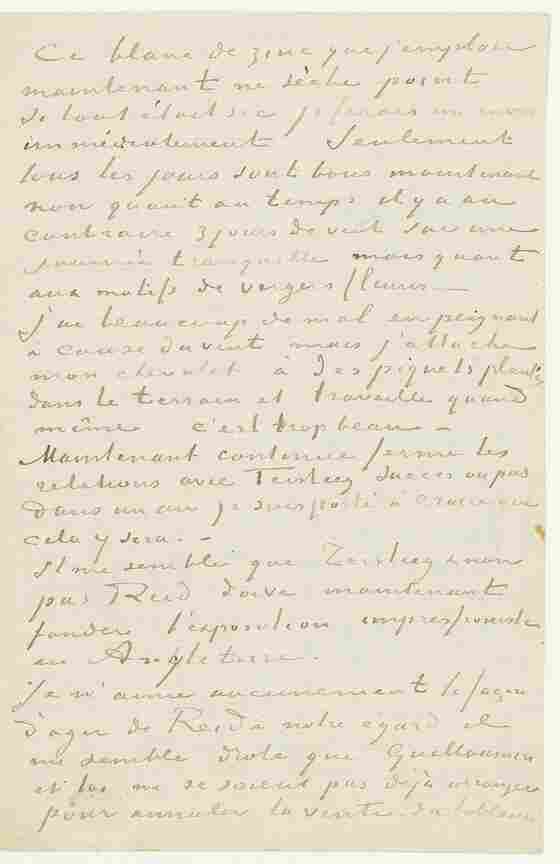 Ce blanc de zinc que j'emploie
maintenant ne sèche point
Si tout était sec je ferais un envoi
immédiatement Seulement
tous les jours sont bons maintenant
non quant au temps il y a au
contraire 3 jours de vent sur une
journée tranquille mais quant
aux motifs de vergers fleuris.—
J'ai beaucoup de mal en peignant
à cause du vent mais j'attache
mon chevalet à des piquets plantés
dans le terrain et travaille quand
même c'est trop beau —
Maintenant continue ferme les
relations avec Tersteeg succès ou pas
Dans un an je suis porté à croire que
cela y sera. —
Il me semble que Tersteeg & non
pas Reid doive maintenant
fonder l'exposition impressioniste
en Angleterre.
Je n'aime aucunement la façon
d'agir de Reid à notre égard il
me semble drole que Guillaumin
et toi ne se soient pas déjà arrangés
pour annuler la vente du tableau